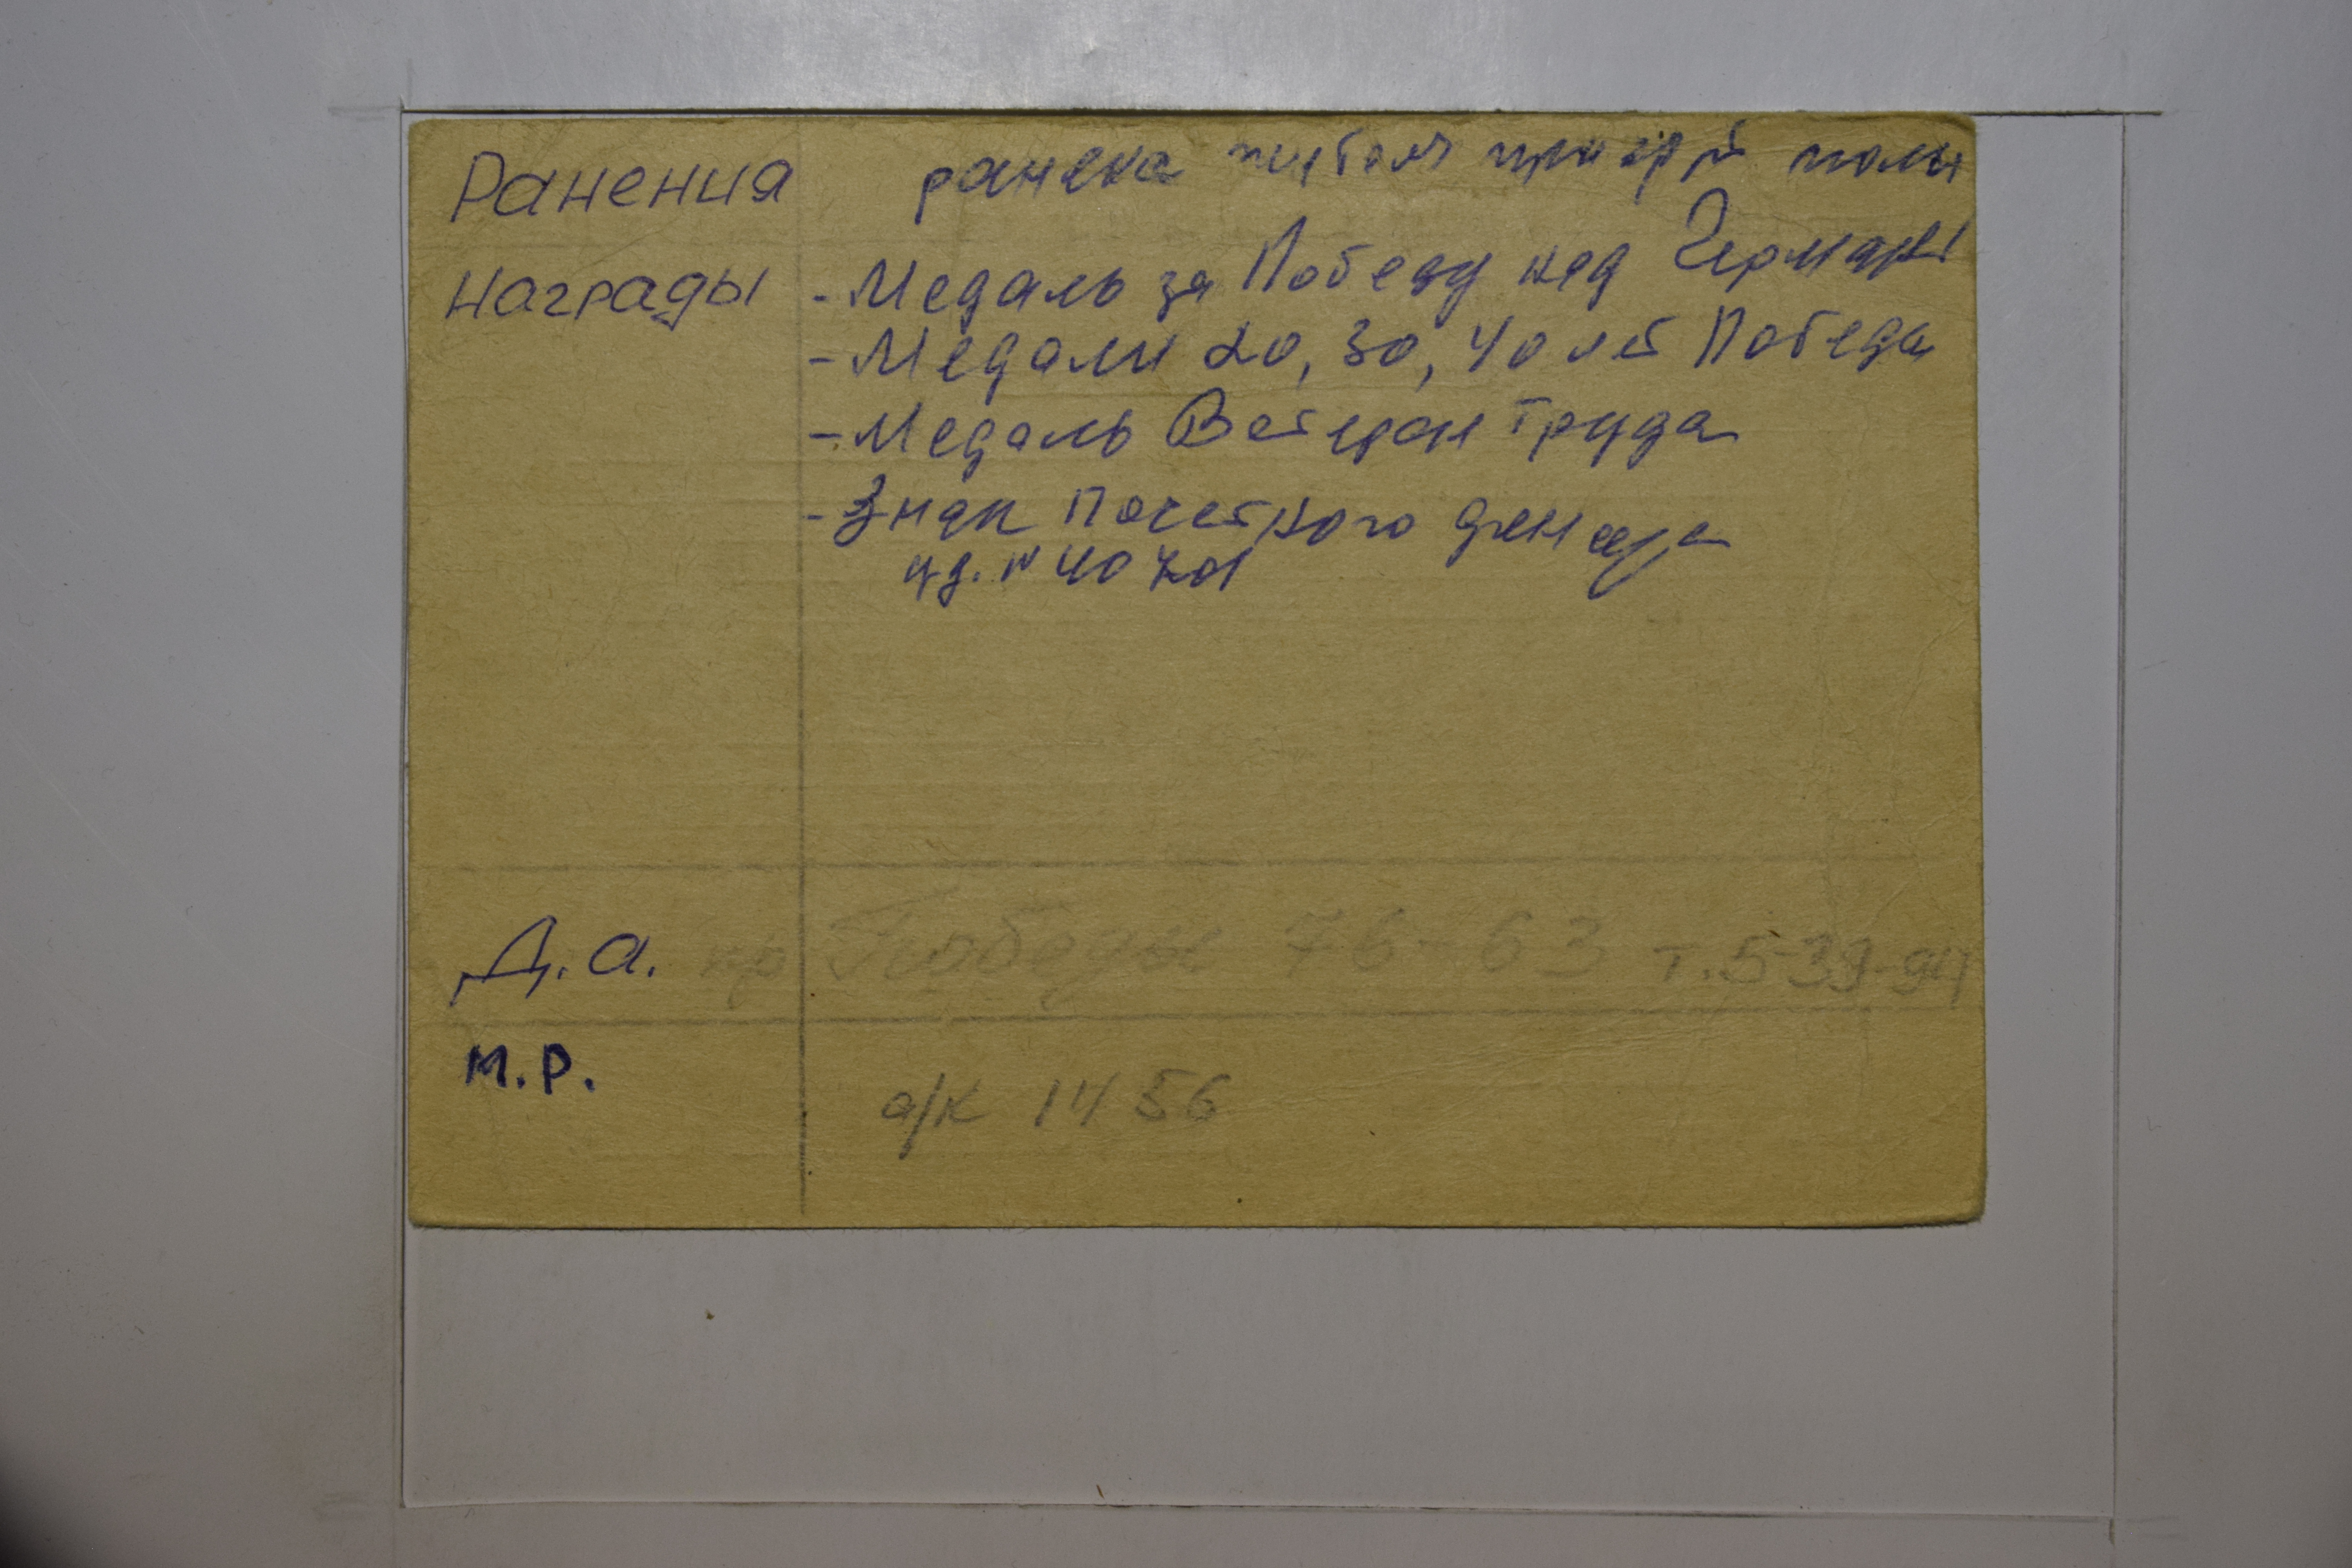 Ранения ранена
Награды - Медаль за Победу над Германи
- Медали 20, 30, 40 лет Победы
- Медаль Ветеран Труда
- Знак Почетного донора
уд. № 40701
Д.а. пр Победы 76-63 т.5-39-94
М.Р.
а/к 1456